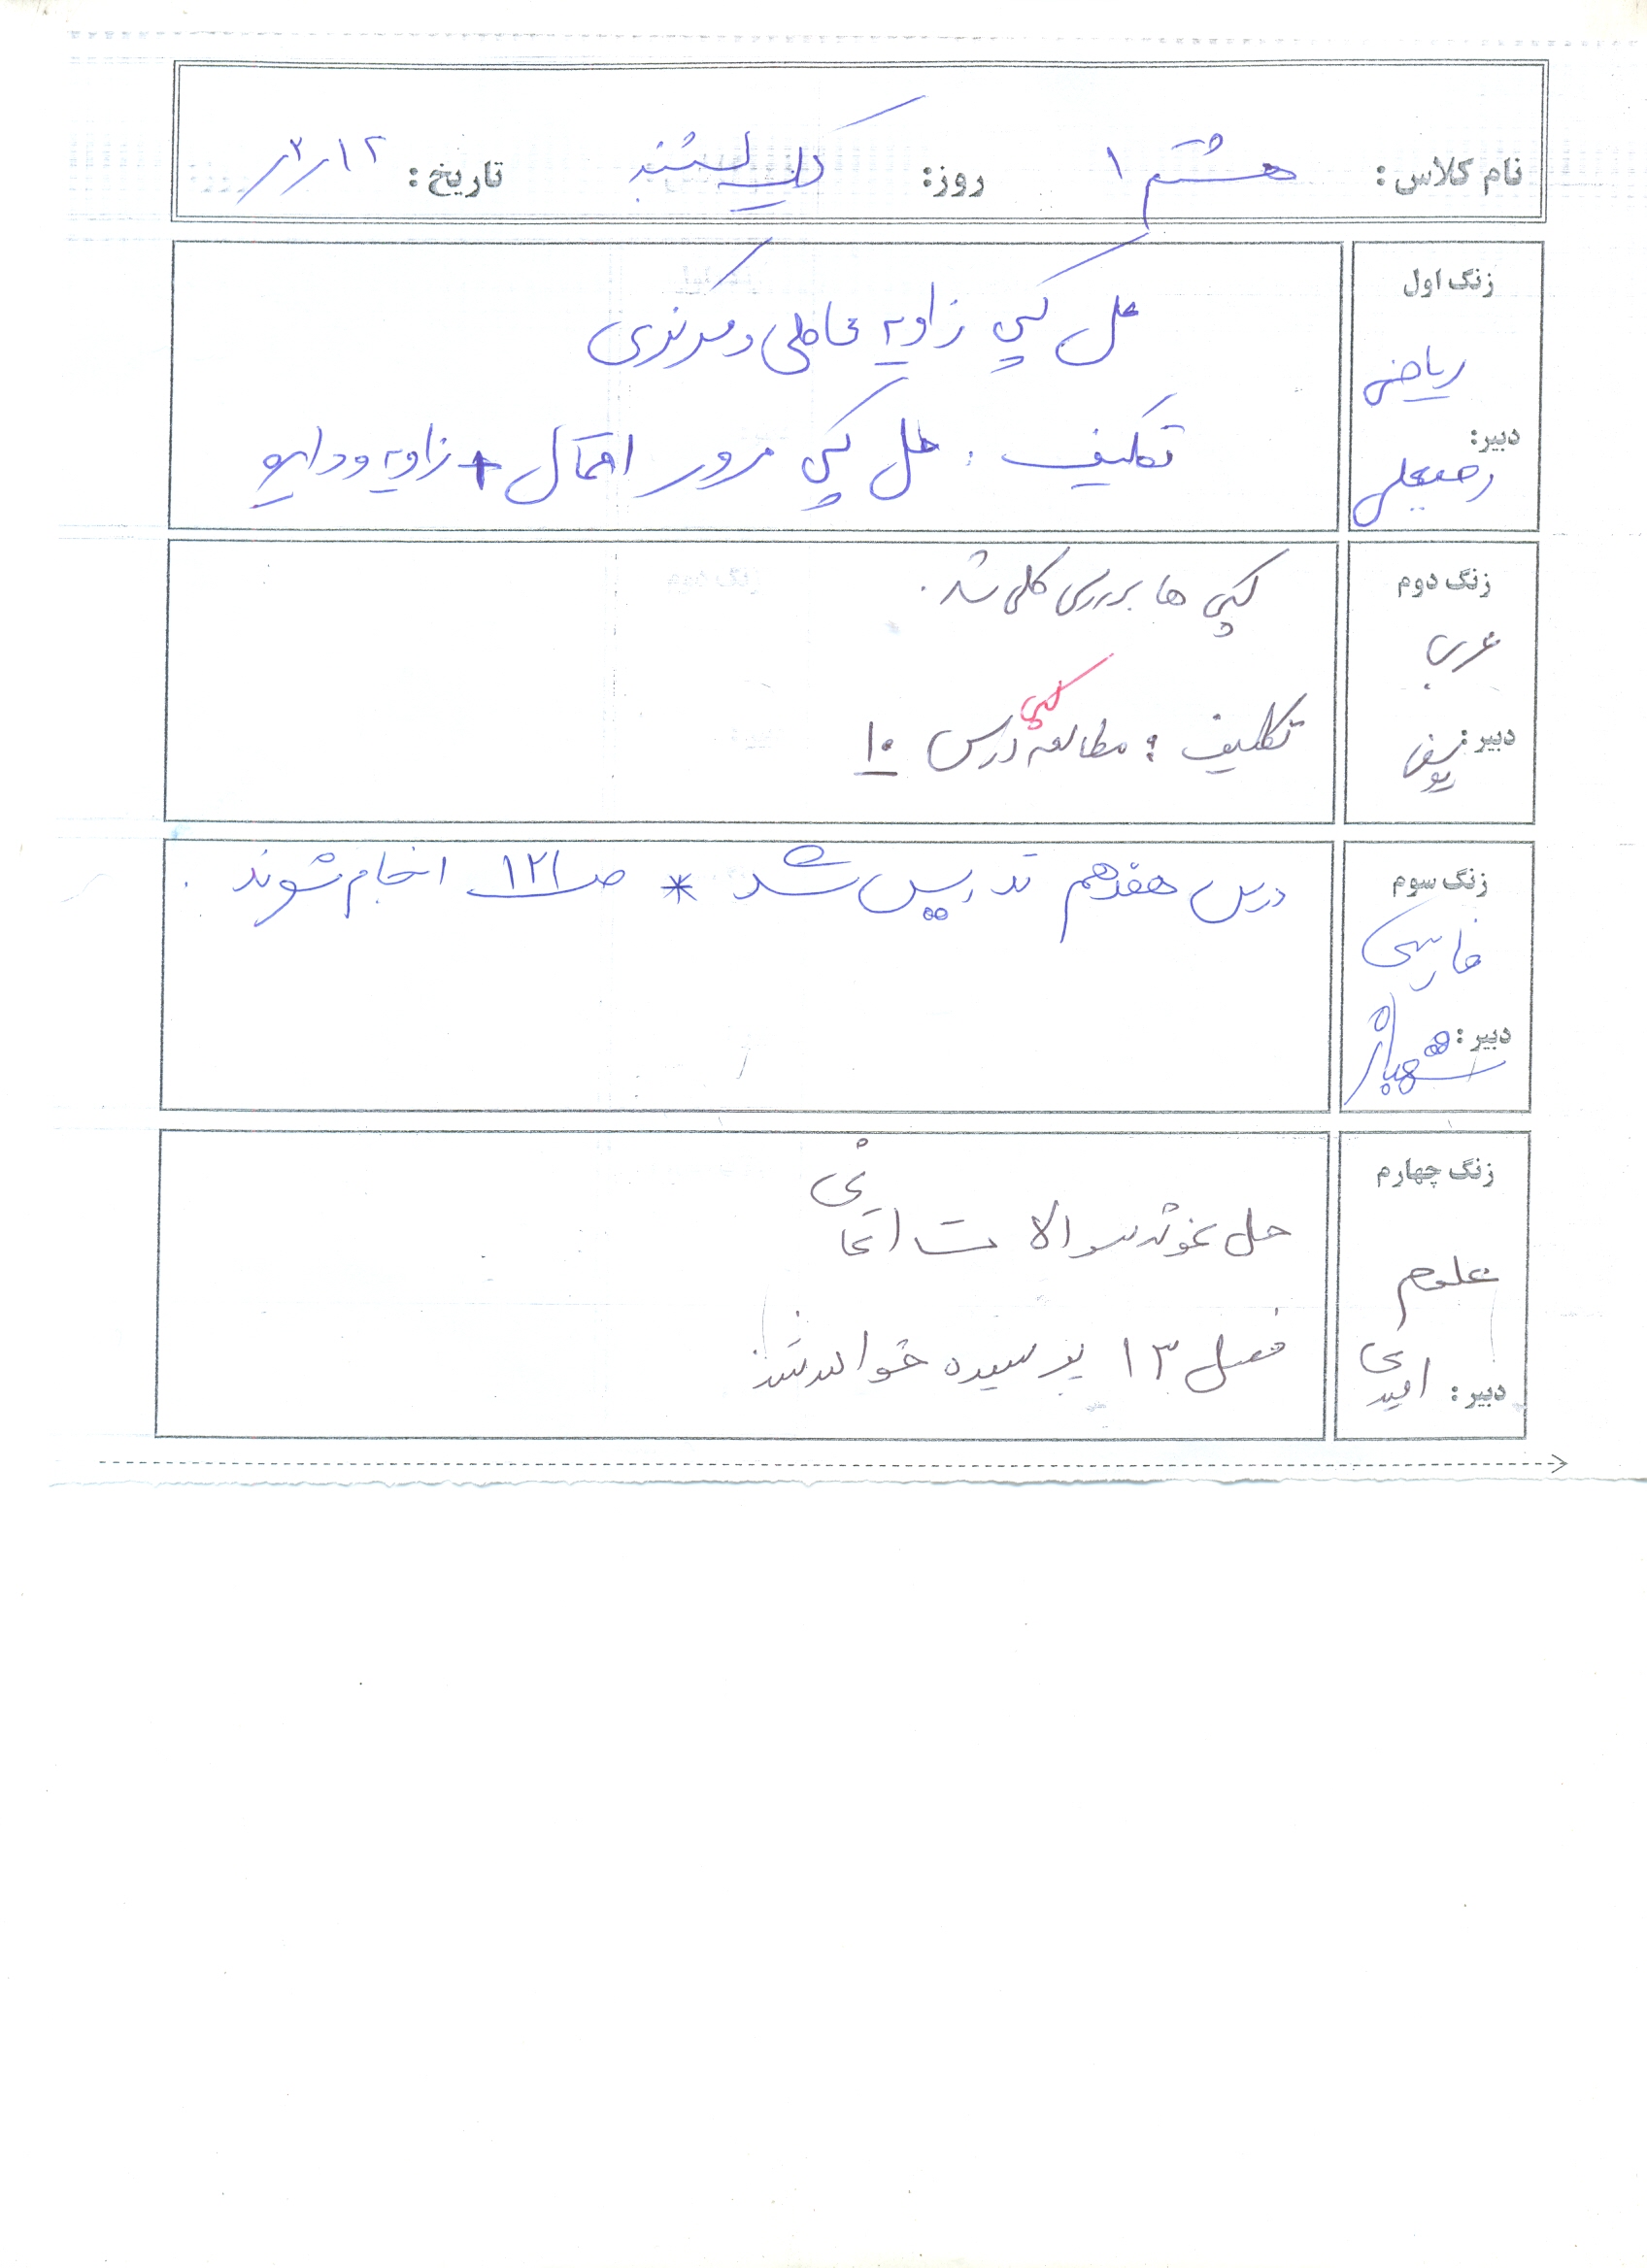 نام کلاس : هشتم ۱ روز: یک شنبه تاریخ : ۱۲ / ۳ /
زنگ اول
حل کپی زاویه محاطی و مرکزی
ریاضی
دبیر:
تکلیف : حل کپی مرور احتمال + زاویه و دایره
زنگ دوم
کپی ها بررسی کلی شد .
عربی
دبیر :
تکلیف : مطالعه کپی درس ۱۰
زنگ سوم
درس هفدهم تدریس شد * ص ۱۲۱ انجام شوند .
فارسی
دبیر : شهباز
زنگ چهارم
حل نمونه سوالات امتحانی
علوم
فصل ۱۳ پرسیده خواهد شد
دبیر : امیدی